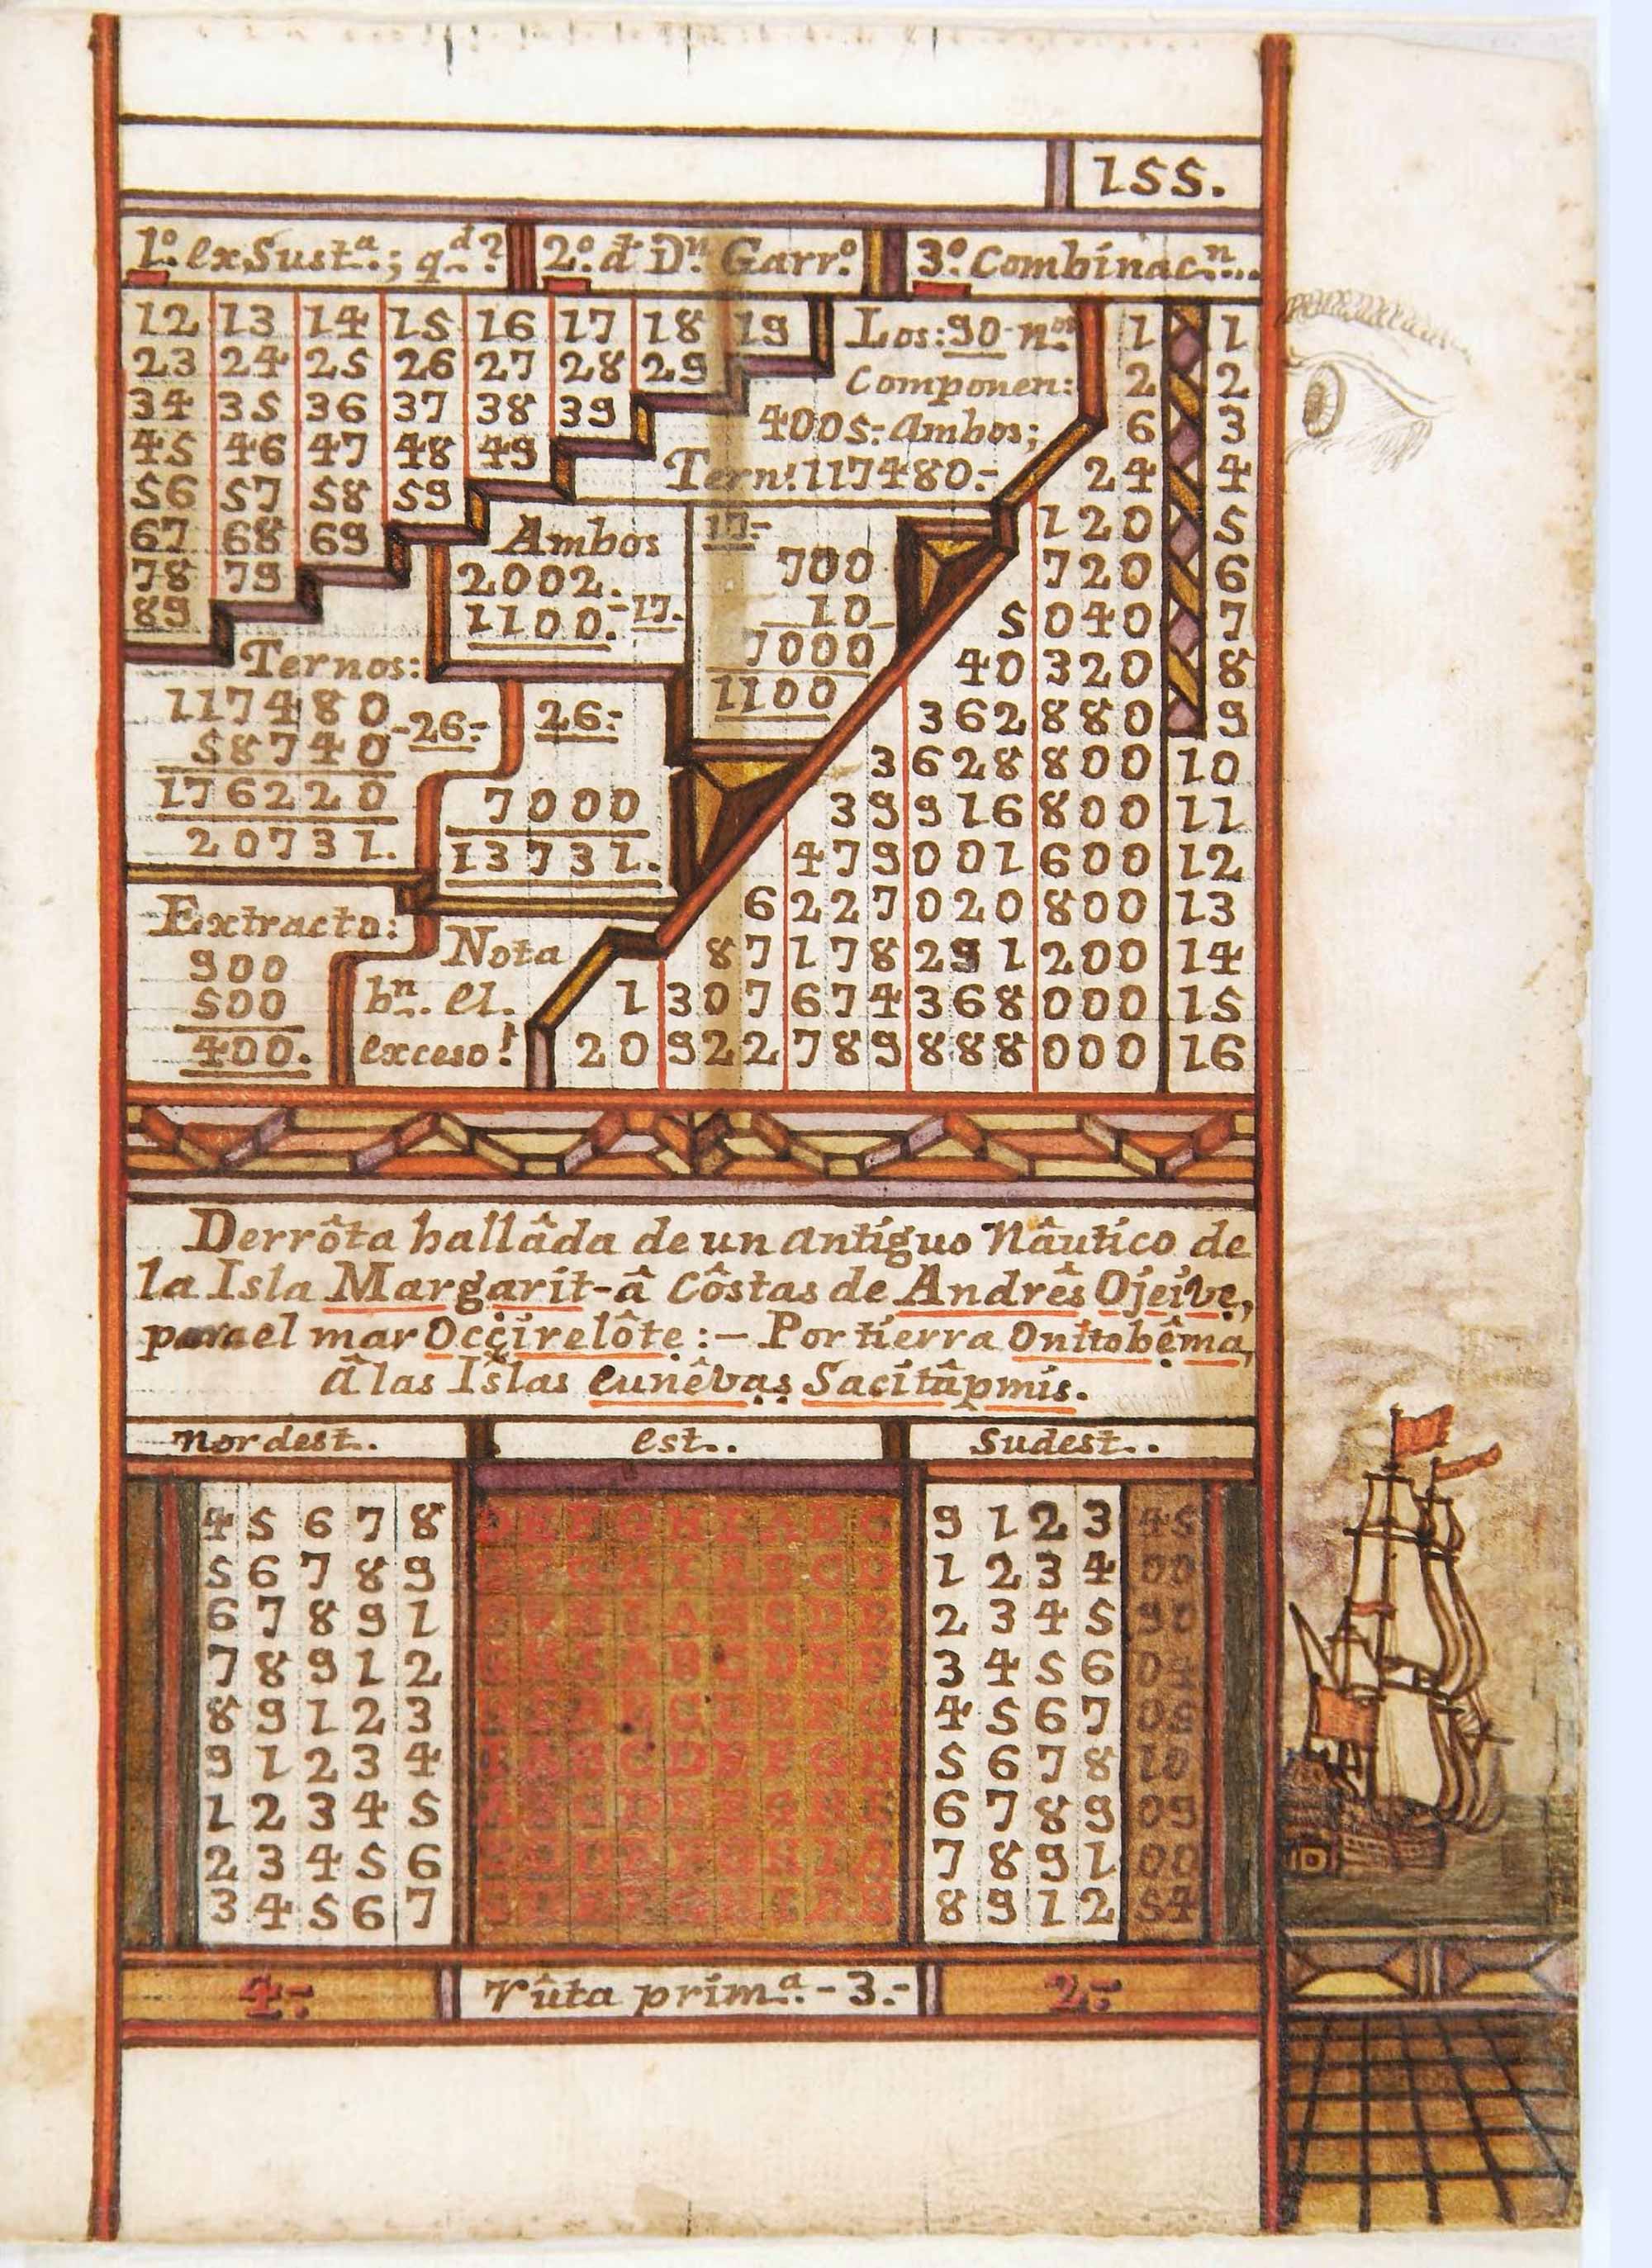 155.
1.º ex Sust.ª; q.d?
2.º d D.n Garr.º
3.º Combinac.n..
12 13 14 15 16 17 18 19
23 24 25 26 27 28 29
34 35 36 37 38 39
45 46 47 48 49
56 57 58 59
67 68 69
78 79
89
Los: 90 n.os
Componen:
4005: Ambos;
Tern.s 117480:-
Ambos
2002.
1100.-17.
17:-
700
10
7000
1100
Ternos:
117480
58740 -26:-
176220
20731.
26:-
7000
13731.
Extracto:
900
500
400.
Nota
b.n el.
exceso!
1 1
2 2
6 3
24 4
120 5
720 6
5 040 7
40 320 8
362 880 9
3 628 800 10
39 916 800 11
479 001 600 12
6 227 020 800 13
87 178 291 200 14
1 307 674 368 000 15
20 922 789 888 000 16
Derrôta hallâda de un antíguo Nâutíco de
la Isla Margarit-â Côstas de Andrês Ojeive,
para el mar Occirelôte :- Por tierra Onitobêma,
â las Islas eunêvas Sacitâpmis.
Nordest.. est.. Sudest..
4 5 6 7 8 D E F G H I A B C 9 1 2 3 45
5 6 7 8 9 E F G H I A B C D 1 2 3 4 00
6 7 8 9 1 F G H I A B C D E 2 3 4 5 90
7 8 9 1 2 G H I A B C D E F 3 4 5 6 04
8 9 1 2 3 H I A B C D E F G 4 5 6 7 05
9 1 2 3 4 I A B C D E F G H 5 6 7 8 10
1 2 3 4 5 A B C D E F G H I 6 7 8 9 09
2 3 4 5 6 B C D E F G H I A 7 8 9 1 00
3 4 5 6 7 C D E F G H I A B 8 9 1 2 54
4:- Rûta prim.ª-3.- 2:-